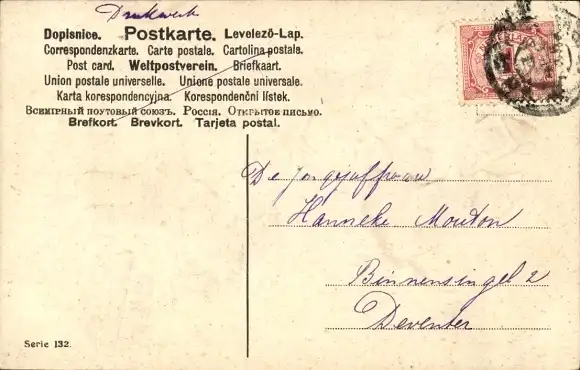 Drukwerk
Dopisnice. Postkarte. Levelező-Lap.
Correspondenzkarte. Carte postale. Cartolina postale.
Post card. Weltpostverein. Briefkaart.
Union postale universelle. Unione postale universale.
Karta korespondencyjna. Korespondenční lístek.
Всемірный поутовый союзъ. Россія. Открытое письмо.
Brefkort. Brevkort. Tarjeta postal.
De jongejuffrouw
Hanneke Mouton
Binnensingel 2
Deventer
Serie 132.